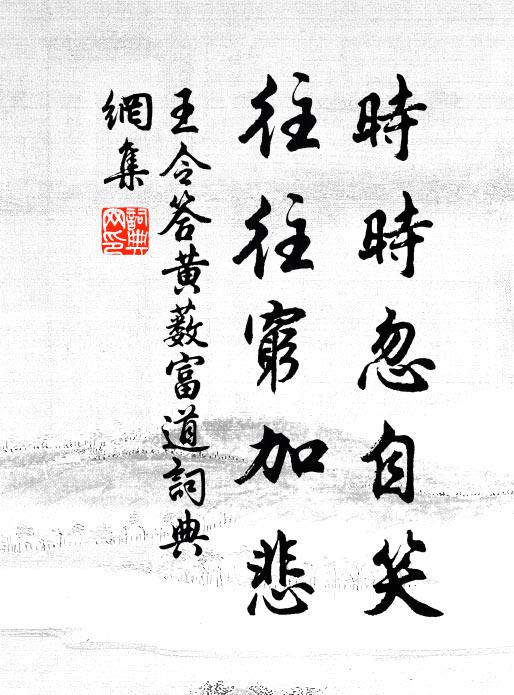 時時忽自笑
往往窮加悲
王令答黄薮富道詞典
網集
詞典
网印